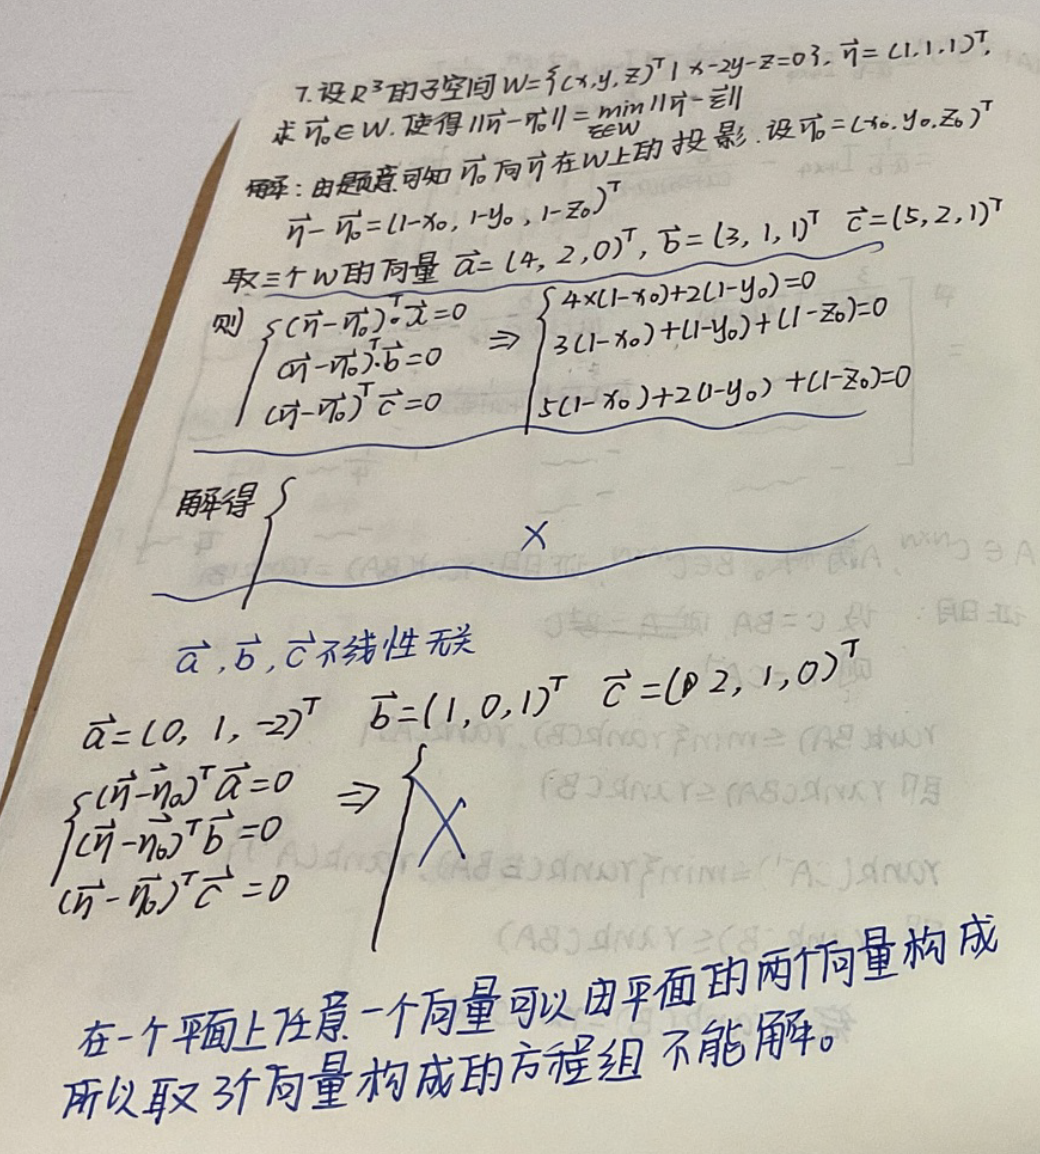 7.设R³的子空间W={(x,y,z)ᵀ|x-2y-z=0}, η⃗=(1,1,1)ᵀ,
求η⃗₀∈W.使得||η⃗-η⃗₀||=min ξ∈W||η⃗-ξ⃗||
解:由题意可知η⃗₀向η⃗在W上的投影.设η⃗₀=(x₀,y₀,z₀)ᵀ
η⃗-η⃗₀=(1-x₀,1-y₀,1-z₀)ᵀ
取三个W的向量 a⃗=(4,2,0)ᵀ, b⃗=(3,1,1)ᵀ c⃗=(5,2,1)ᵀ
则 { (η⃗-η⃗₀)ᵀ·a⃗=0 ⇒ { 4×(1-x₀)+2(1-y₀)=0
(η⃗-η⃗₀)ᵀ·b⃗=0 3(1-x₀)+(1-y₀)+(1-z₀)=0
(η⃗-η⃗₀)ᵀc⃗=0 5(1-x₀)+2(1-y₀)+(1-z₀)=0
解得 {
×
a⃗,b⃗,c⃗不线性无关
a⃗=(0,1,-2)ᵀ b⃗=(1,0,1)ᵀ c⃗=(2,1,0)ᵀ
{ (η⃗-η⃗₀)ᵀa⃗=0 ⇒ {
(η⃗-η⃗₀)ᵀb⃗=0 ×
(η⃗-η⃗₀)ᵀc⃗=0
在一个平面上任意一个向量可以由平面的两个向量构成
所以取3个向量构成的方程组不能解。